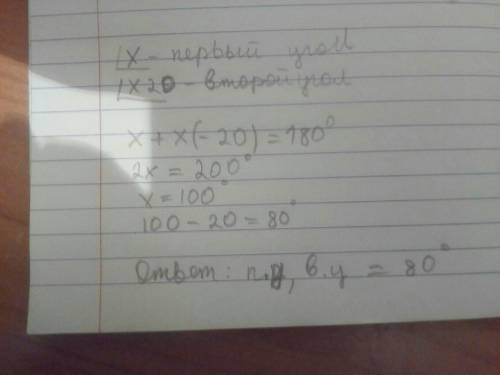 1X - первый угол
1X20 - второй угол
x + x(-20) = 180°
2x = 200°
x = 100°
100 - 20 = 80°
Ответ: п.у, в.у = 80°